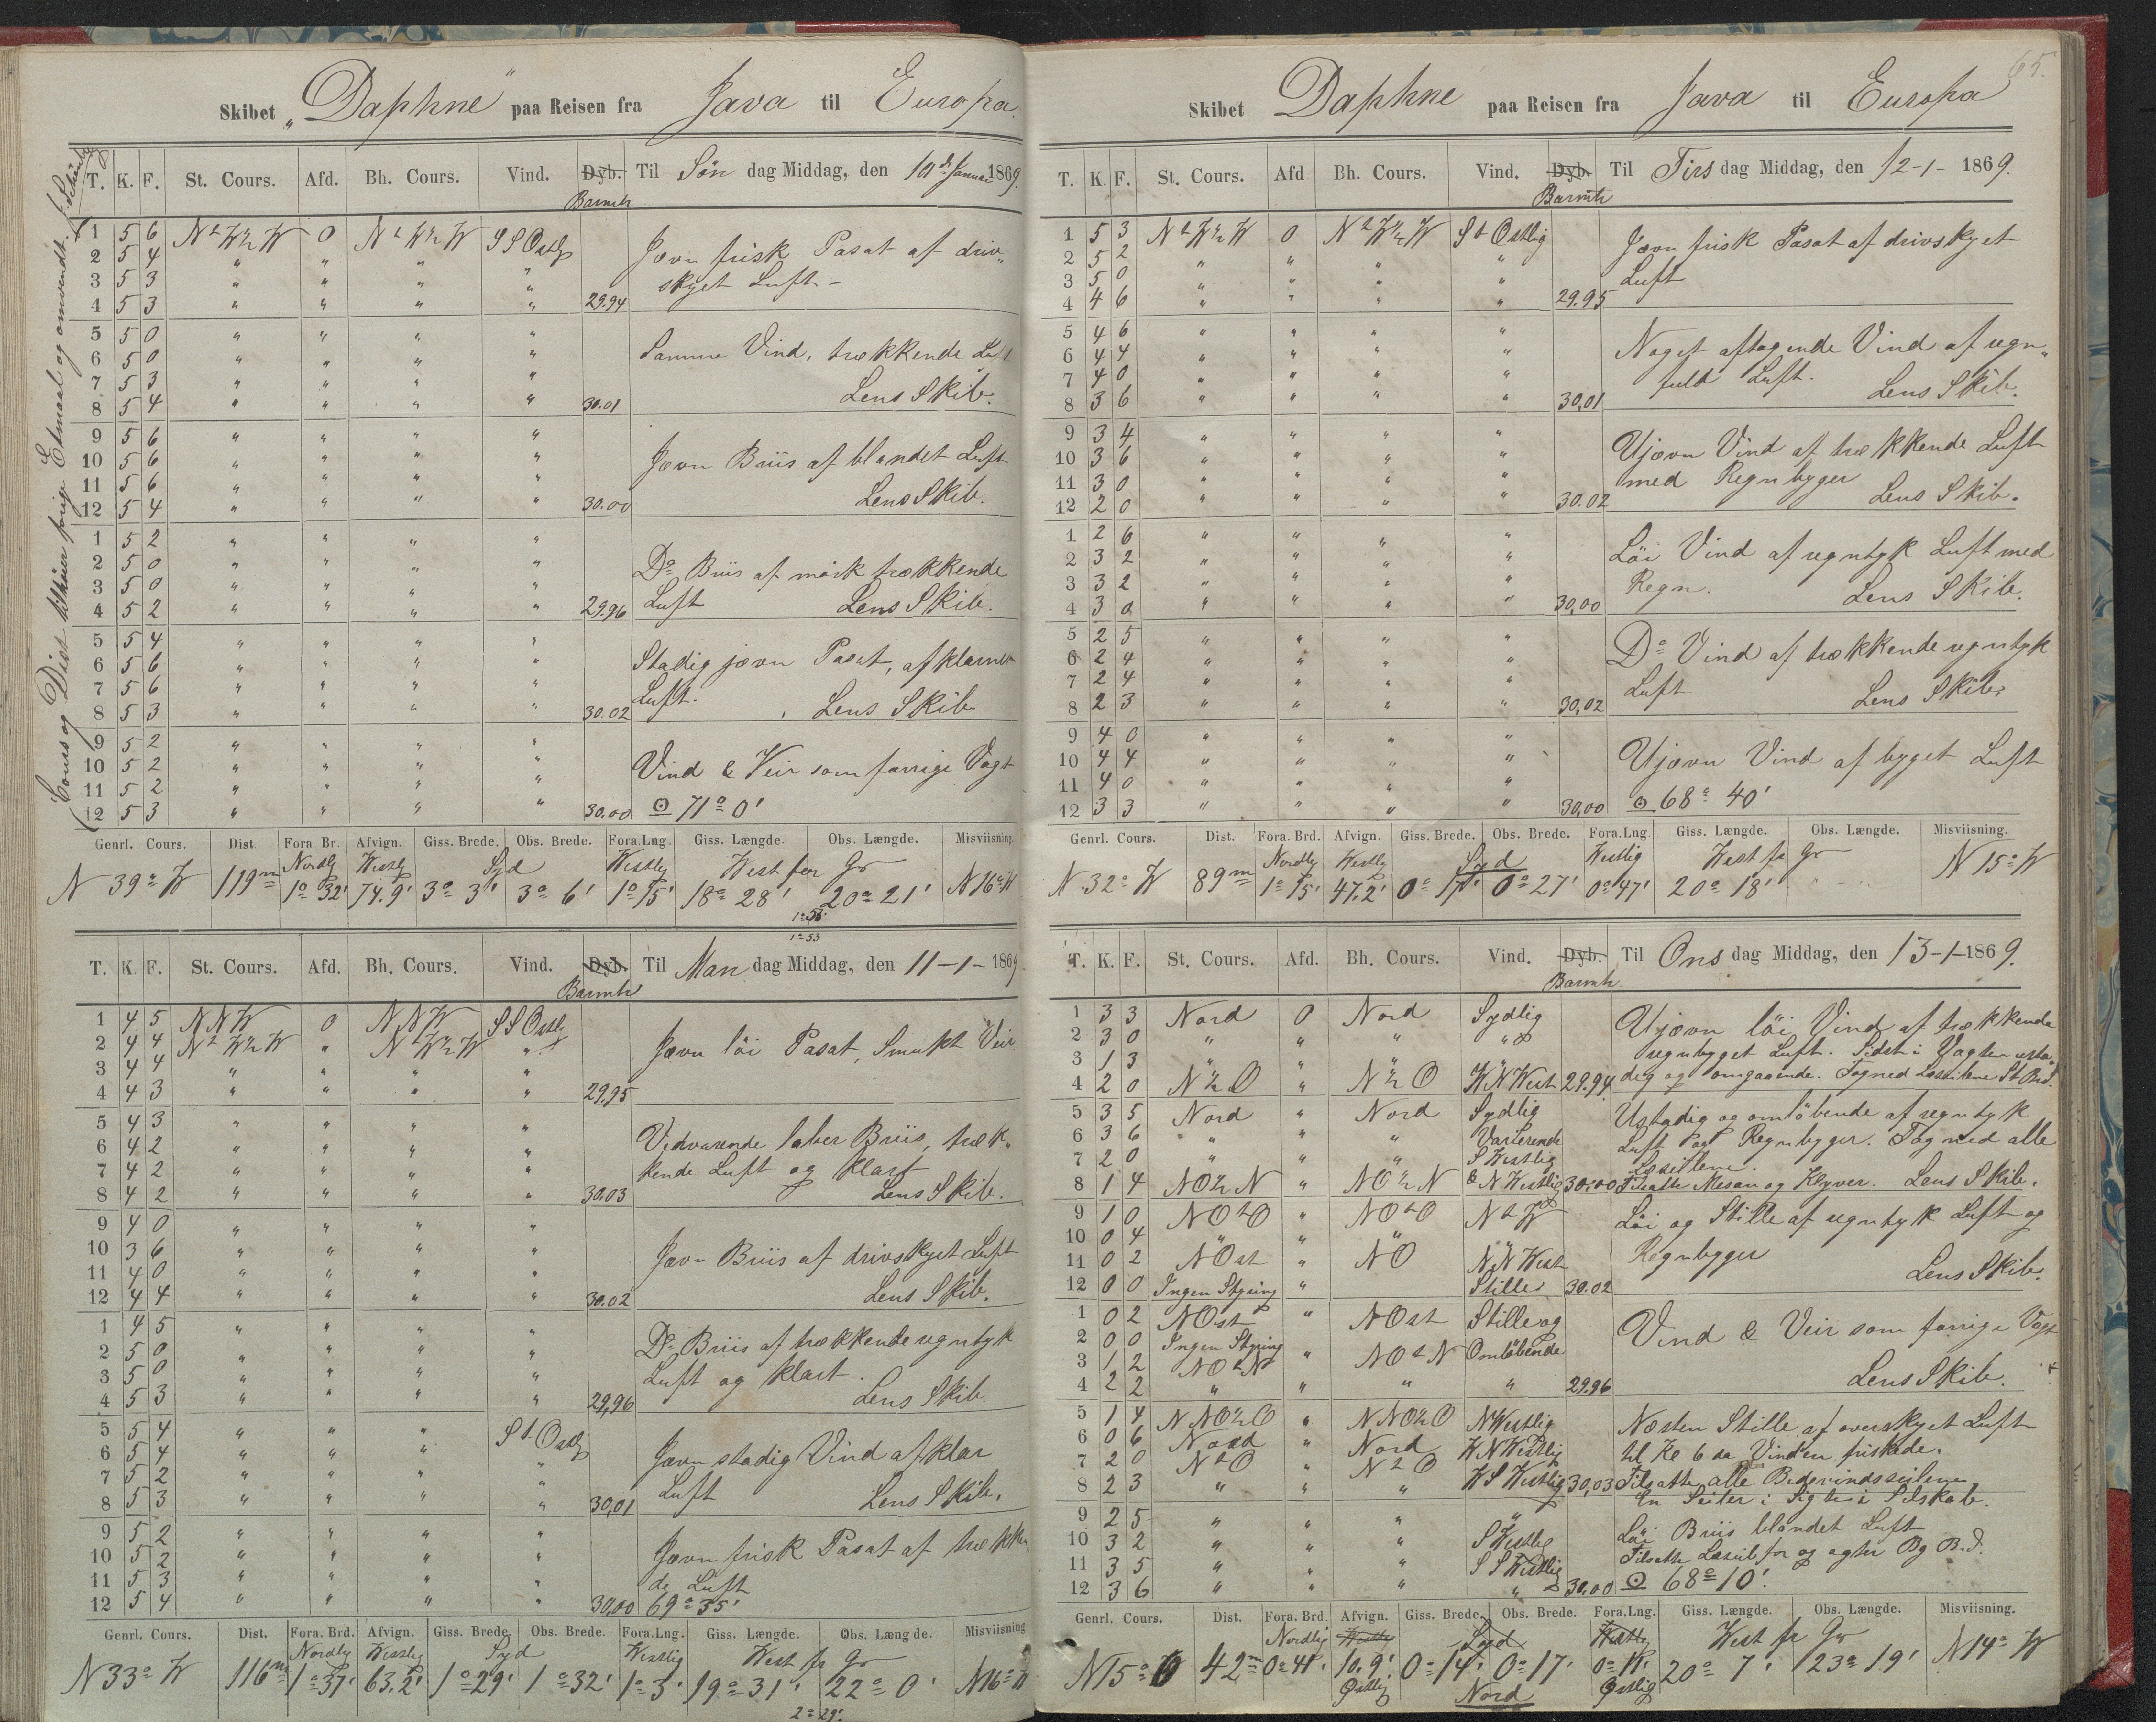 Skibet „Daphne“ paa Reisen fra Java til Europa.
Cours og Dist tilhører forige Etmaal og omvendt.
T. K. F. St. Cours. Afd. Bh. Cours. Vind. Dyb. Til Søn dag Middag, den 10de Januar 1869.
Barmtr
1 5 6 NtW½W 0 NtW½W SSOstlg Jævn frisk Pasat af driv„
2 5 4 " " " " skyet Luft –
3 5 3 " " " "
4 5 3 " " " " 29.94
5 5 0 " " " "
6 5 0 " " " " Samme Vind, trækkende Luft
7 5 3 " " " "
8 5 4 " " " " 30.01 Lens Skib.
9 5 6 " " " "
10 5 6 " " " " Jævn Briis af blandet Luft
11 5 6 " " " "
12 5 4 " " " " 30.00 Lens Skib.
1 5 2 " " " "
2 5 0 " " " " Do Briis af mørk trækkende
3 5 0 " " " "
4 5 2 " " " " 29.96 Luft Lens Skib.
5 5 4 " " " "
6 5 6 " " " " Stadig jævn Pasat, af klarnet
7 5 6 " " " " Luft.
8 5 3 " " " " 30.02 Lens Skib
9 5 2 " " " "
10 5 2 " " " " Vind & Veir som forrige Vagt
11 5 2 " " " "
12 5 3 " " " " 30.00 ⊙ 71° 0'
Genrl. Cours. Dist. Fora Br. Afvign. Giss. Brede. Obs. Brede. Fora.Lng. Giss. Længde. Obs. Længde. Misviisning.
Nordlg Westlg Syd Westlg West for Gr
N 39° W 119m 1° 32' 74.9' 3° 3' 3° 6' 1° 15' 18° 28' 20° 21' N16°W
1° 53
T. K. F. St. Cours. Afd. Bh. Cours. Vind. Dyb. Til Man dag Middag, den 11-1-1869
Barmtr
1 4 5 NNW 0 NNW SSOstlg
2 4 4 NtW½W " NtW½W " Jævn løi Pasat, Smukt Veir.
3 4 4 " " " "
4 4 3 " " " " 29.95
5 4 3 " " " "
6 4 2 " " " " Vedvarende laber Briis, træk„
7 4 2 " " " " kende Luft og klart
8 4 2 " " " " 30.03 Lens Skib.
9 4 0 " " " "
10 3 6 " " " " Jævn Briis af drivskyet Luft
11 4 0 " " " "
12 4 4 " " " " 30.02 Lens Skib.
1 4 5 " " " "
2 5 0 " " " " Do Briis af trækkende regntyk
3 5 0 " " " " Luft og klart.
4 5 3 " " " " 29,96 Lens Skib
5 5 4 " " " StOstlg
6 5 4 " " " " Jævn stadig Vind af klar
7 5 2 " " " " Luft
8 5 3 " " " " 30,01 Lens Skib.
9 5 2 " " " "
10 5 2 " " " " Jævn frisk Pasat af trækken
11 5 3 " " " " de Luft
12 5 4 " " " " 30,00 69° 35'
Genrl. Cours. Dist. Fora. Brd. Afvign. Giss. Brede. Obs. Brede. Fora.Lng. Giss. Længde. Obs. Længde. Misviisning
Nordlg Westlg Syd Westlg West fr Gr
N 33° W 116m 1° 37' 63.2' 1° 29' 1° 32' 1° 3' 19° 31' 22° 0' N16°W
2° 29'
65.
Skibet Daphne paa Reisen fra Java til Europa
T. K. F. St. Cours. Afd Bh. Cours. Vind. Dyb. Til Tirs dag Middag, den 12-1- 1869.
Barmtr
1 5 3 NtW½W 0 NtW½W StOstlig Jævn frisk Pasat af drivskyet
2 5 2 " " " " Luft
3 5 0 " " " "
4 4 6 " " " " 29.95
5 4 6 " " " "
6 4 4 " " " " Noget aftagende Vind af regn„
7 4 0 " " " " fuld Luft.
8 3 6 " " " " 30,01 Lens Skib.
9 3 4 " " " "
10 3 6 " " " " Ujævn Vind af trækkende Luft
11 3 0 " " " " med Regnbyger
12 2 0 " " " " 30.02 Lens Skib.
1 2 6 " " " "
2 3 2 " " " " Løi Vind af regntyk Luft med
3 3 2 " " " " Regn.
4 3 0 " " " " 30,00 Lens Skib.
5 2 5 " " " "
6 2 4 " " " " Do Vind af trækkende regntyk
7 2 4 " " " " Luft
8 2 3 " " " " 30,02 Lens Skib.
9 4 0 " " " "
10 4 4 " " " " Ujævn Vind af byget Luft
11 4 0 " " " "
12 3 3 " " " " 30,00 ⊙ 68° 40'
Genrl. Cours. Dist. Fora. Brd. Afvign. Giss. Brede. Obs. Brede. Fora.Lng. Giss. Længde. Obs. Længde. Misviisning.
Nordlg Westlg Syd Westlig West fr Gr
N 32° W 89m 1° 15' 47.2' 0° 17' 0° 27' 0° 47' 20° 18' N 15° W
T. K. F. St. Cours. Afd. Bh. Cours. Vind. Dyb. Til Ons dag Middag, den 13-1-1869.
Barmtr
1 3 3 Nord 0 Nord Sydlig Ujævn løi Vind af trækkende
2 3 0 " " " " regnbyget Luft. Sidst i Vagten usta„
3 1 3 " " "
4 2 0 N½O " N½O WNWest 29.94 dig og omgaaende. Tog ned Læseilene St Brd.
5 3 5 Nord " Nord Sydlig Ustadig og omløbende af regntyk
6 3 6 " " " Varierende Luft og Regnbyger. Tog ned alle
7 2 0 " " " SWestlig Læseilene.
8 1 4 NO½N " NO½N & NWestlig 30.00 Tilsatte Mesan og Klyver. Lens Skib.
9 1 0 NOtO " NOtO NtW Løi og Stille af regntyk Luft og
10 0 4 " " " " Regnbyger
11 0 2 NOst " NO NNWest
12 0 0 Ingen Styring " Stille 30.02 Lens Skib.
1 0 2 NOst " NOst Stille og
2 0 0 Ingen Styring Vind & Veir som forrige Vagt
3 1 2 NOtN " NOtN Omløbende
4 2 2 " " " " 29.96 Lens Skib.
5 1 4 NNO½O " NNO½O NWestlig Næsten Stille af overskyet Luft
6 0 6 Nord " Nord WNWestlig til Kl 6 da Vinden friskede.
7 2 0 NtO " NtO
8 2 3 " " " WSWestlig 30,03 Tilsatte alle Bidevindsseilene
En Seiler i Sigte i Selskab.
9 2 5 " " " " Løi Briis blandet Luft
10 3 2 " " " SWestlig
11 3 5 " " " SSWestlig Tilsatte Læseil for og agter Bg B.d.
12 3 6 " " " " 30.00 ⊙ 68° 10'.
Genrl. Cours. Dist. Fora. Brd. Afvign. Giss. Brede. Obs. Brede. Fora.Lng. Giss. Længde. Obs. Længde. Misviisning.
Nordlig Westlg Syd Westlg West fr Gr
N15°O 42m 0° 41' 10.9' 0° 14' 0° 17' 0° 11' 20° 7' 23° 19' N14° W
Østlg Nord Østlig